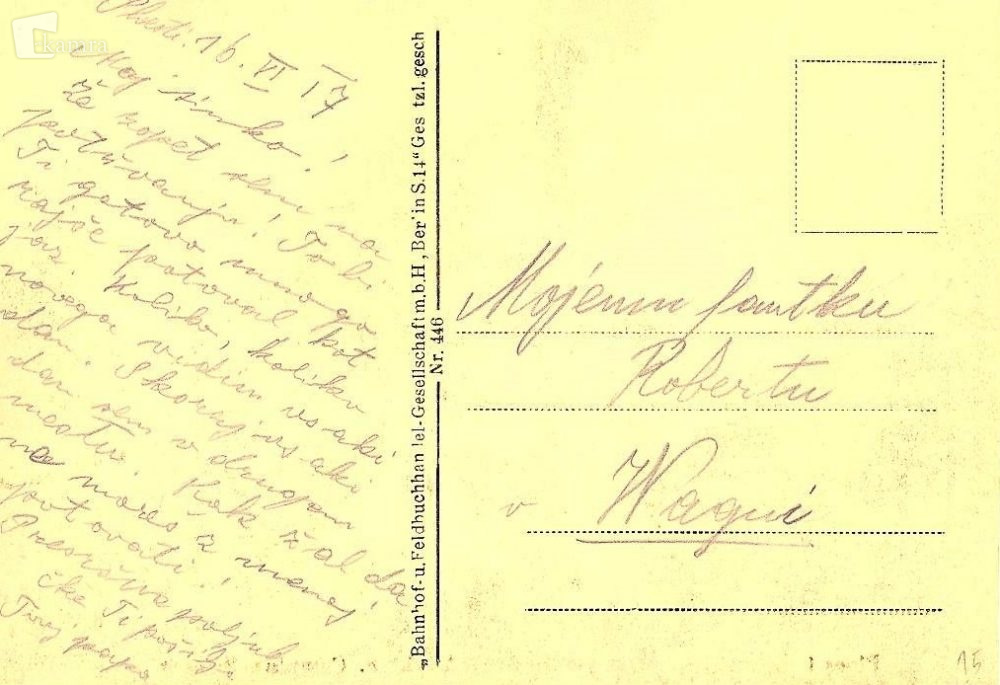 kamra
Ploesti. 16. VI 17
Moj sinko!
Že zopet sem na
potovanju! To bi
Ti gotovo mnogo
rajše potoval kot
jaz. Koliko, koliko
novega vidim vsaki
dan. Skoraj vsaki
dan sem v drugem
mestu. Kak žal da
ne moreš z menoj
potovati!
Presrčne poljub
čke Ti pošilja
Tvoj papa
„Bahnhof- u. Feldbuchhandel-Gesellschaft m.b.H, Ber' in S.14" Ges tzl. gesch
Nr. 446
Mojemu fantku
Robertu
v Wagni
15